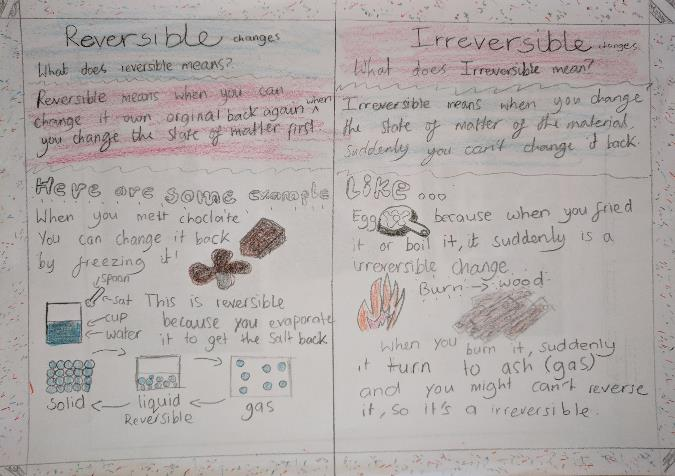 Reversible changes
What does reversible means?
Reversible means when you can
change it own orginal back again when
you change the state of matter first.
Here are some example
When you melt choclate
You can change it back
by freezing it!
spoon
salt This is reversible
cup because you evaporate
water it to get the Salt back
solid liquid gas
Reversible
Irreversible changes
What does Irreversible mean?
Irreversible means when you change
the state of matter of the material,
suddenly you can't change it back.
Like...
Egg because when you fried
it or boil it, it suddenly is a
irreversible change
Burn → wood
When you burn it, suddenly
it turn to ash (gas)
and you might can't reverse
it, so it's a irreversible.